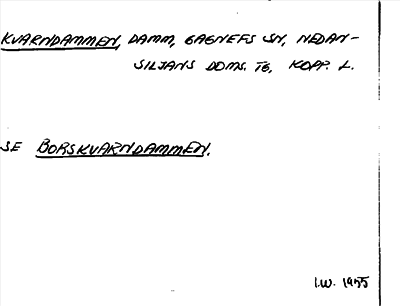 KVARNDAMMEN, DAMM, GAGNEFS SN, NEDAN-
SILJANS DOMS. TG, KOPP. L.
SE BORSKVARNDAMMEN.
I.W. 1955